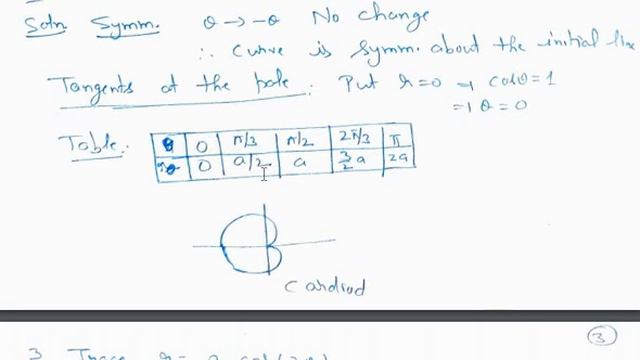 Soln Symm. θ → -θ No change
∴ Curve is symm. about the initial line
Tangents at the pole: Put r=0 ⇒ cosθ=1
⇒ θ=0
Table:
θ 0 π/3 π/2 2π/3 π
0 a/2 a 3/2 a 2a
Cardiod
3
3 Trace r=